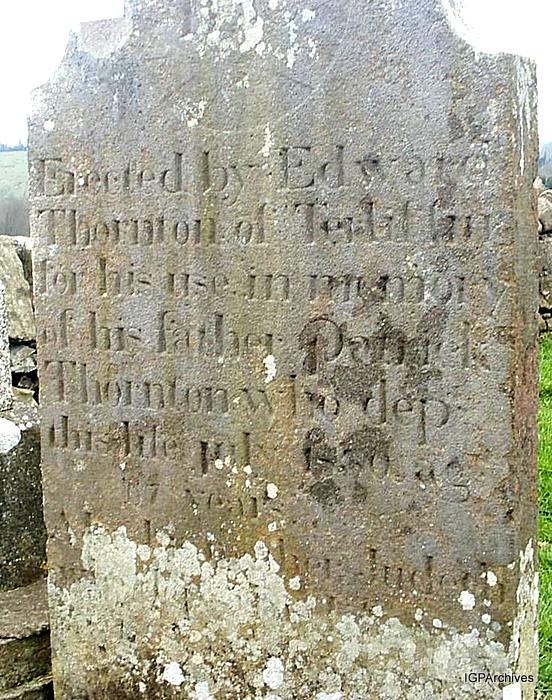 Erected by Edward
Thornton of
for his use in memory
of his father Patrick
Thornton who dep
this life july 1830 ag
years
Judeth
IGPArchives